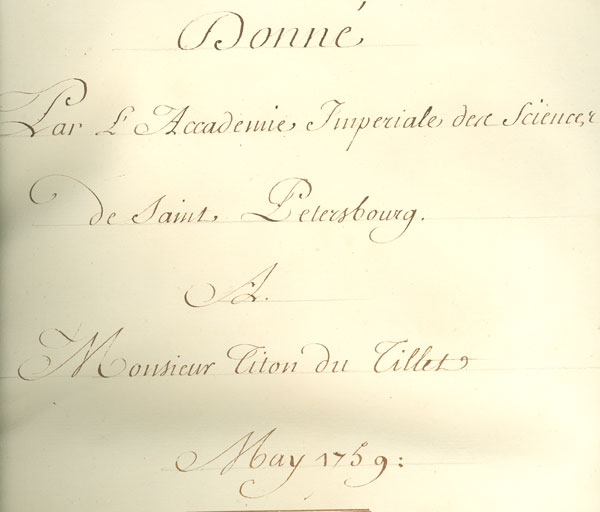 Donné
Par L'Accademie Imperiale des Sciences
de Saint Petersbourg.
A.
Monsieur Titon du Tillet
May 1759: